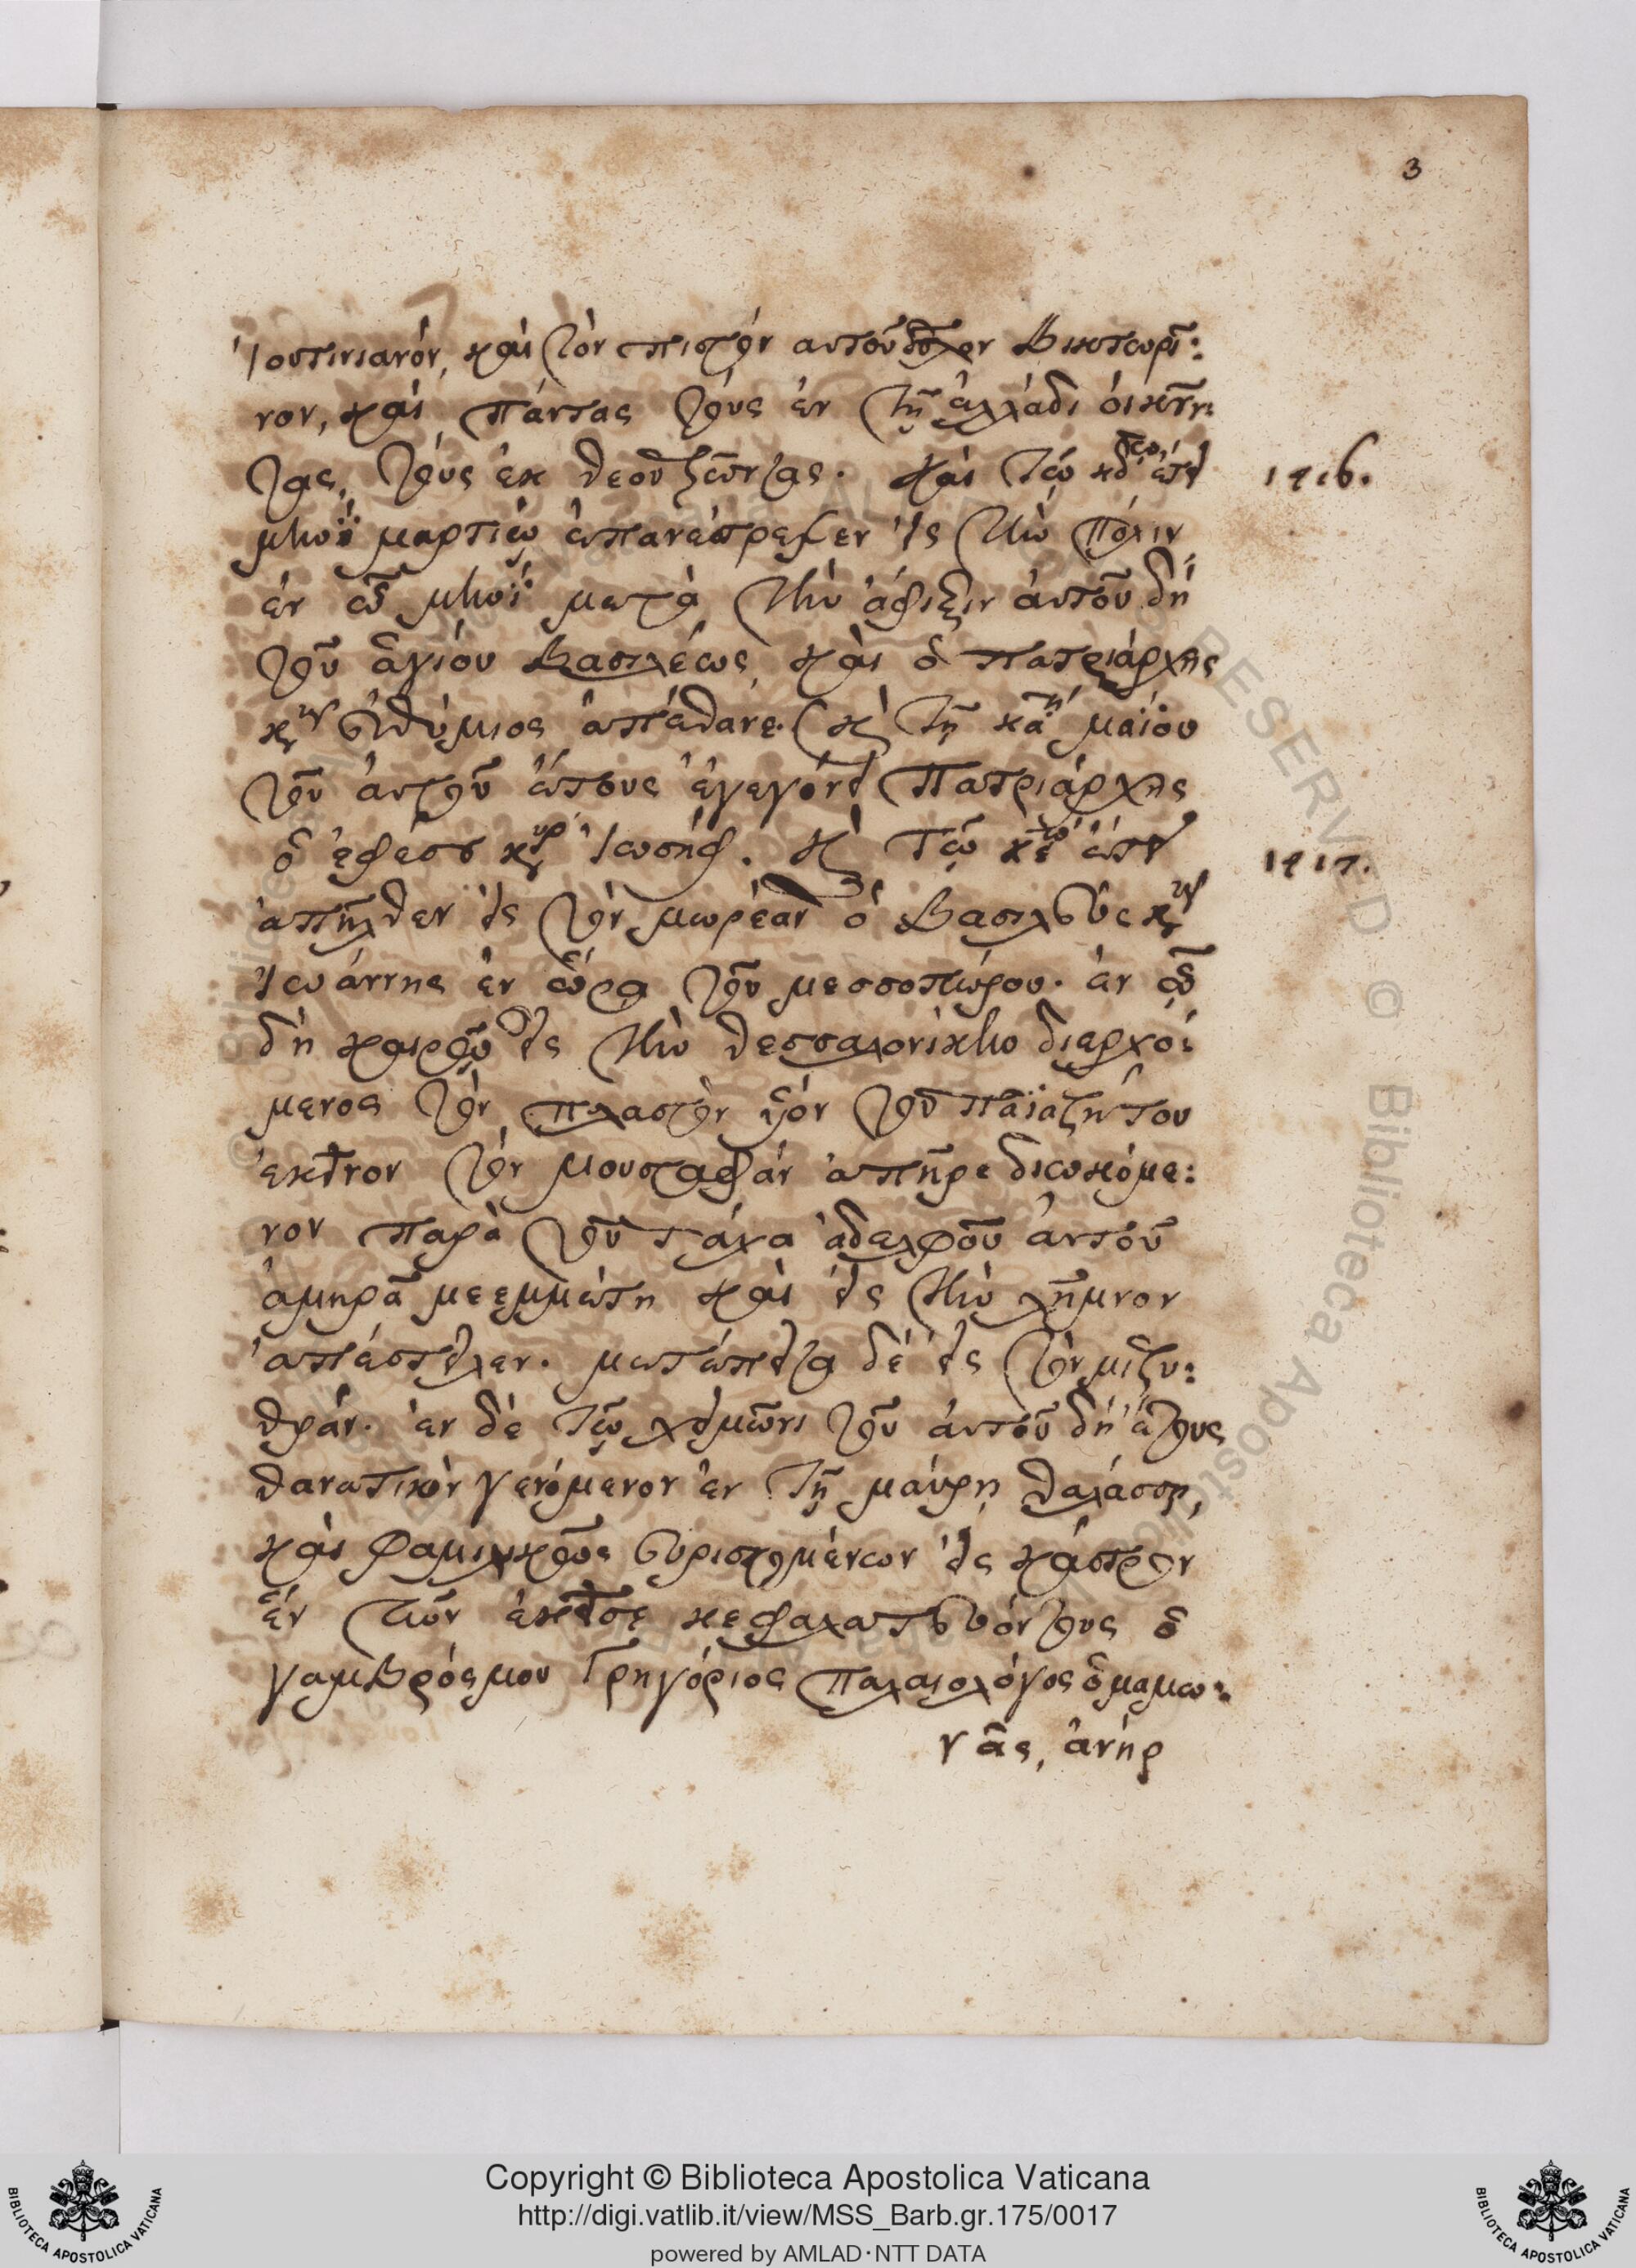 3
Ἰουστινιανόν, καὶ τὸν πιστὸν αυτοῦ δοῦλον Βικτωρῖ:
νον, καὶ πάντας τοὺς ἐν τῇ ἑλλάδι οἰκοῦν:
τας, τοὺς ἐκ θεοῦ ζῶντας. Καὶ τῷ κδ῾ ἔτει
μηνὶ μαρτίῳ ἐπανέστρεψεν εἰς τὴν πόλιν
1416.
ἐν ᾧ μηνὶ μετὰ τὴν ἄφιξιν ἀυτοῦ δὴ
τοῦ ἁγίου Βασιλέως, καὶ ὁ πατριάρχης
κὺρ Ευθύμιος ἀπέθανε. κ τῇ κα῾ μαΐου
τοῦ ἀυτοῦ ἔτους ἐγεγόνει Πατριάρχης
ὁ ἐφέσου κὺρ Ἰωσήφ. κ τῷ κε῾ ἔτει
1417.
ἀπῆλθεν εἰς τὸν μωρέαν ὁ Βασιλεὺς κὺρ
Ἰωάννης ἐν ὥρα τοῦ μεσσοπώρου. ἐν ᾧ
δὴ καιρῷ εἰς τὴν θεσσαλονίκην διερχό:
μενος τὸν πλαστὸν υἱὸν τοῦ παϊαζήτου
ἐκεῖνον τὸν μουσταφάν ἀπῆρε διωκόμε:
νον παρὰ τοῦ τάχα ἀδελφοῦ ἀυτοῦ
ἀμηρᾶ μεεμμέτη καὶ εἰς τὴν λῆμνον
ἀπέστειλεν. μετέπειτα δὲ εἰς τὸν μιζυ:
θράν. ἐν δὲ τῷ χειμῶνι τοῦ ἀυτοῦ δὴ ἔτους
θανατικὸν γενόμενον ἐν τῇ μάυρη θαλάσση,
καὶ φαμιλικῶς ευρισκομένων εἰς κάστρον
ἓν τῶν ἐκεῖσε κεφαλατευόντους ὁ
γαμβρός μου Γρηγόριος παλαιολόγος ὁ μαμω:
νᾶς, ἀνήρ
Copyright © Biblioteca Apostolica Vaticana
http://digi.vatlib.it/view/MSS_Barb.gr.175/0017
powered by AMLAD·NTT DATA
BIBLIOTECA APOSTOLICA VATICANA
BIBLIOTECA APOSTOLICA VATICANA